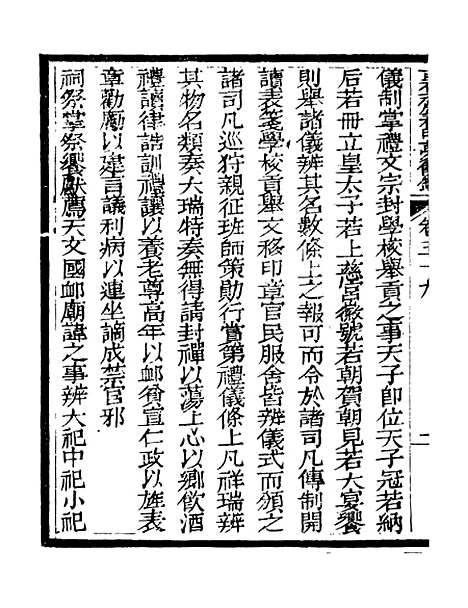 卷三十九
儀制掌禮文宗封學校舉貢之事天子即位天子冠若納
后若冊立皇太子若上慈宮徽號若朝賀朝見若大宴饗
則舉諸儀辨其名數條上之報可而令於諸司凡傳制開
讀表箋學校貢舉文移印章官民服舍皆辨儀式而頒之
諸司凡巡狩親征班師策勛行賞第禮儀條上凡祥瑞辨
其物名類奏大瑞特奏無得請封禪以蕩上心以鄉飲酒
禮讀律誥訓禮讓以養老尊高年以䘏貧宣仁政以旌表
章勸勵以建言議利病以連坐謫成禁官邪
祠祭掌祭饗獻薦天文國䘏廟諱之事辨大祀中祀小祀